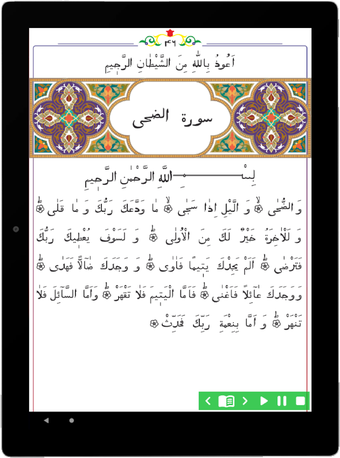 اَعُوذُ بِاللّٰهِ مِنَ الشَّيْطَانِ الرَّجِيمِ
سورة الضحى
بِسْمِ اللّٰهِ الرَّحْمٰنِ الرَّحِيمِ
وَ الضُّحٰى ۞ وَ الَّيْلِ اِذَا سَجٰى ۞ مَا وَدَّعَكَ رَبُّكَ وَ مَا قَلٰى ۞
وَ لَلْاٰخِرَةُ خَيْرٌ لَكَ مِنَ الْاُولٰى ۞ وَ لَسَوْفَ يُعْطِيكَ رَبُّكَ
فَتَرْضٰى ۞ اَلَمْ يَجِدْكَ يَتِيمًا فَاٰوٰى ۞ وَ وَجَدَكَ ضَالًّا فَهَدٰى ۞
وَ وَجَدَكَ عَائِلًا فَاَغْنٰى ۞ فَاَمَّا الْيَتِيمَ فَلَا تَقْهَرْ ۞ وَاَمَّا السَّائِلَ فَلَا
تَنْهَرْ ۞ وَ اَمَّا بِنِعْمَةِ رَبِّكَ فَحَدِّثْ ۞